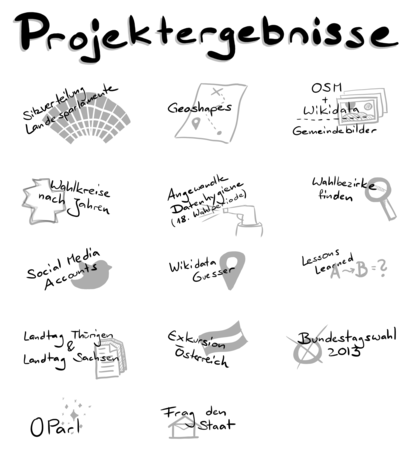 Projektergebnisse
Sitzverteilung
Landesparlamente
Geoshapes
OSM
+
Wikidata
Gemeindebilder
Wahlkreise
nach Jahren
Angewandte
Datenhygiene
(18. Wahlperiode)
Wahlbezirke
finden
Social Media
Accounts
Wikidata
Guesser
Lessons
Learned
A→B=?
Landtag Thürigen
&
Landtag Sachsen
Exkursion
Österreich
Bundestagswahl
2013
OParl
Frag den
Staat